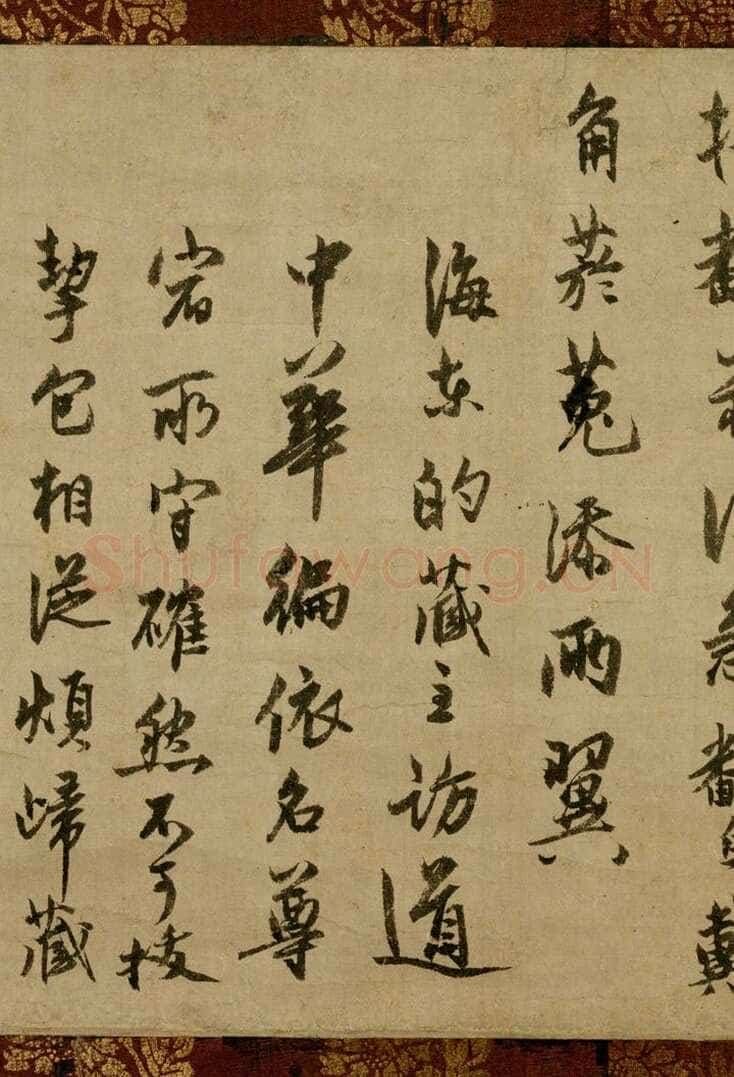 角菸菟添兩翼
海東的藏主訪道
中華徧依名尊
宿所守確然不可拔
摯包相從煩歸藏
Shufawang.CN